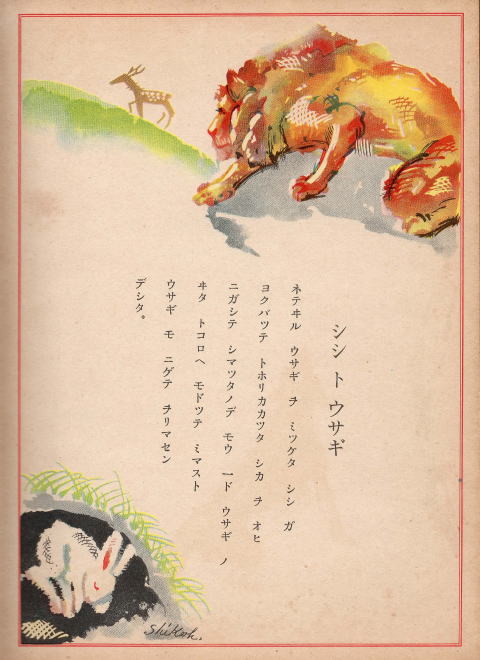 シシ ト ウサギ
ネテヰル ウサギ ヲ ミツケタ シシ ガ
ヨクバツテ トホリカカツタ シカ ヲ オヒ
ニガシテ シマツタノデ モウ 一ド ウサギ ノ
ヰタ トコロヘ モドツテ ミマスト
ウサギ モ ニゲテ ヲリマセン
デシタ。
Shikoh.